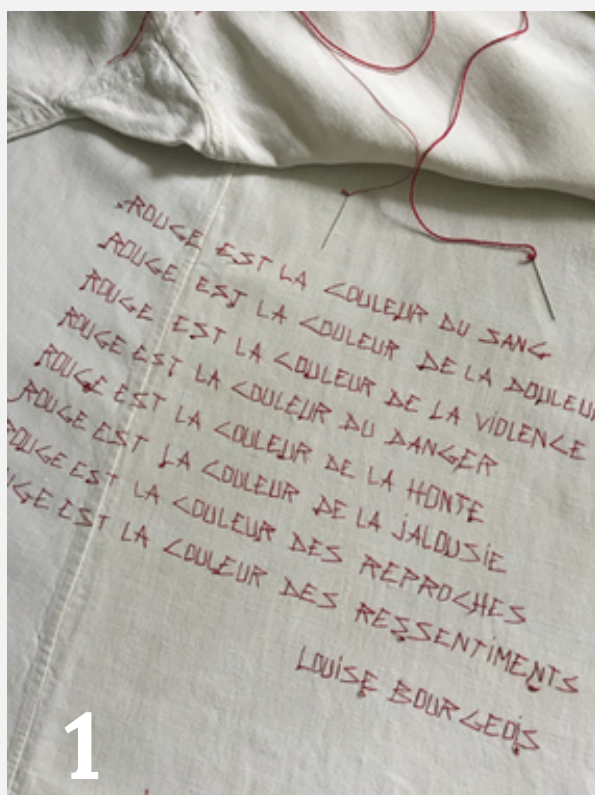 ROUGE EST LA COULEUR DU SANG
ROUGE EST LA COULEUR DE LA DOULEUR
ROUGE EST LA COULEUR DE LA VIOLENCE
ROUGE EST LA COULEUR DU DANGER
ROUGE EST LA COULEUR DE LA HONTE
ROUGE EST LA COULEUR DE LA JALOUSIE
ROUGE EST LA COULEUR DES REPROCHES
UGE EST LA COULEUR DES RESSENTIMENTS
LOUISE BOURGEOIS
1